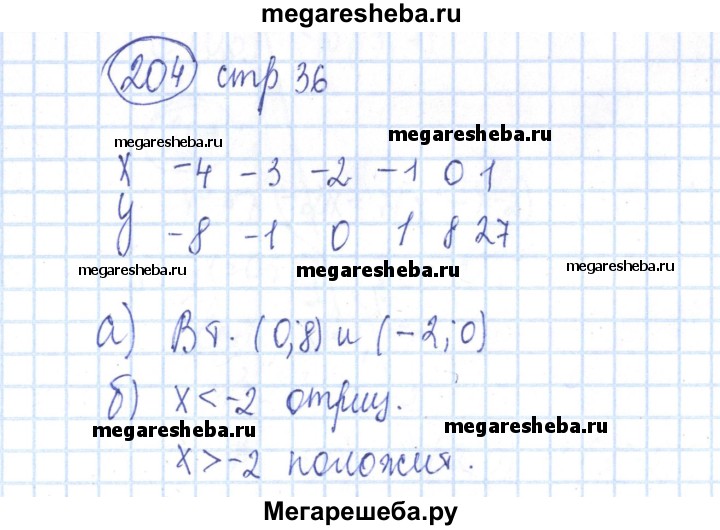 megaresheba.ru
204 стр 36
megaresheba.ru
megaresheba.ru
x -4 -3 -2 -1 0 1
y -8 -1 0 1 8 27
megaresheba.ru
megaresheba.ru
megaresheba.ru
а) В т. (0;8) и (-2;0)
б) x<-2 отриц.
megaresheba.ru
megaresheba.ru
x>-2 положит.
Мегарешеба.ру